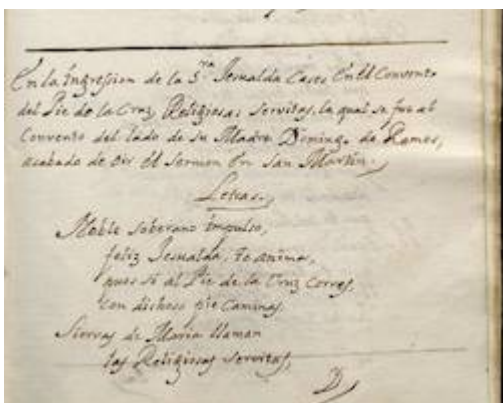 En la Ingression de la S.ra Jesualda Cases En el Convento
del Pie de la Cruz Religiosas Servitas, la qual se fue al
Convento del lado de su Madre Doming. de Ramos,
acabado de oir el Sermon en San Martin.
Letras.
Noble soberano impulso,
feliz Jesualda, te anima,
pues si al Pie de la Cruz Corres,
con dichoso pie Caminas.
Siervas de Maria llaman
las Religiosas Servitas,